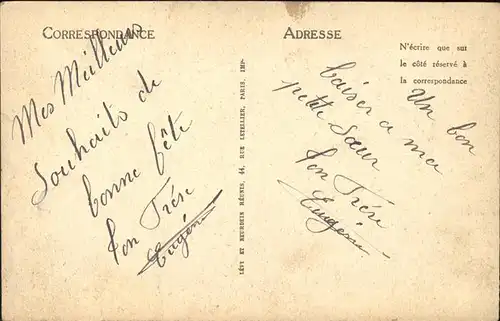 CORRESPONDANCE
Mes Meilleurs
Souhaits de
bonne fête
ton Frére
Eugéne
LÉVY ET NEURDEIN RÉUNIS, 44, RUE LETELLIER, PARIS, IMP.
ADRESSE
N'écrire que sur
le côté réservé à
la correspondance
Un bon
baiser a ma
petite Sœur
ton Frére
Eugéne